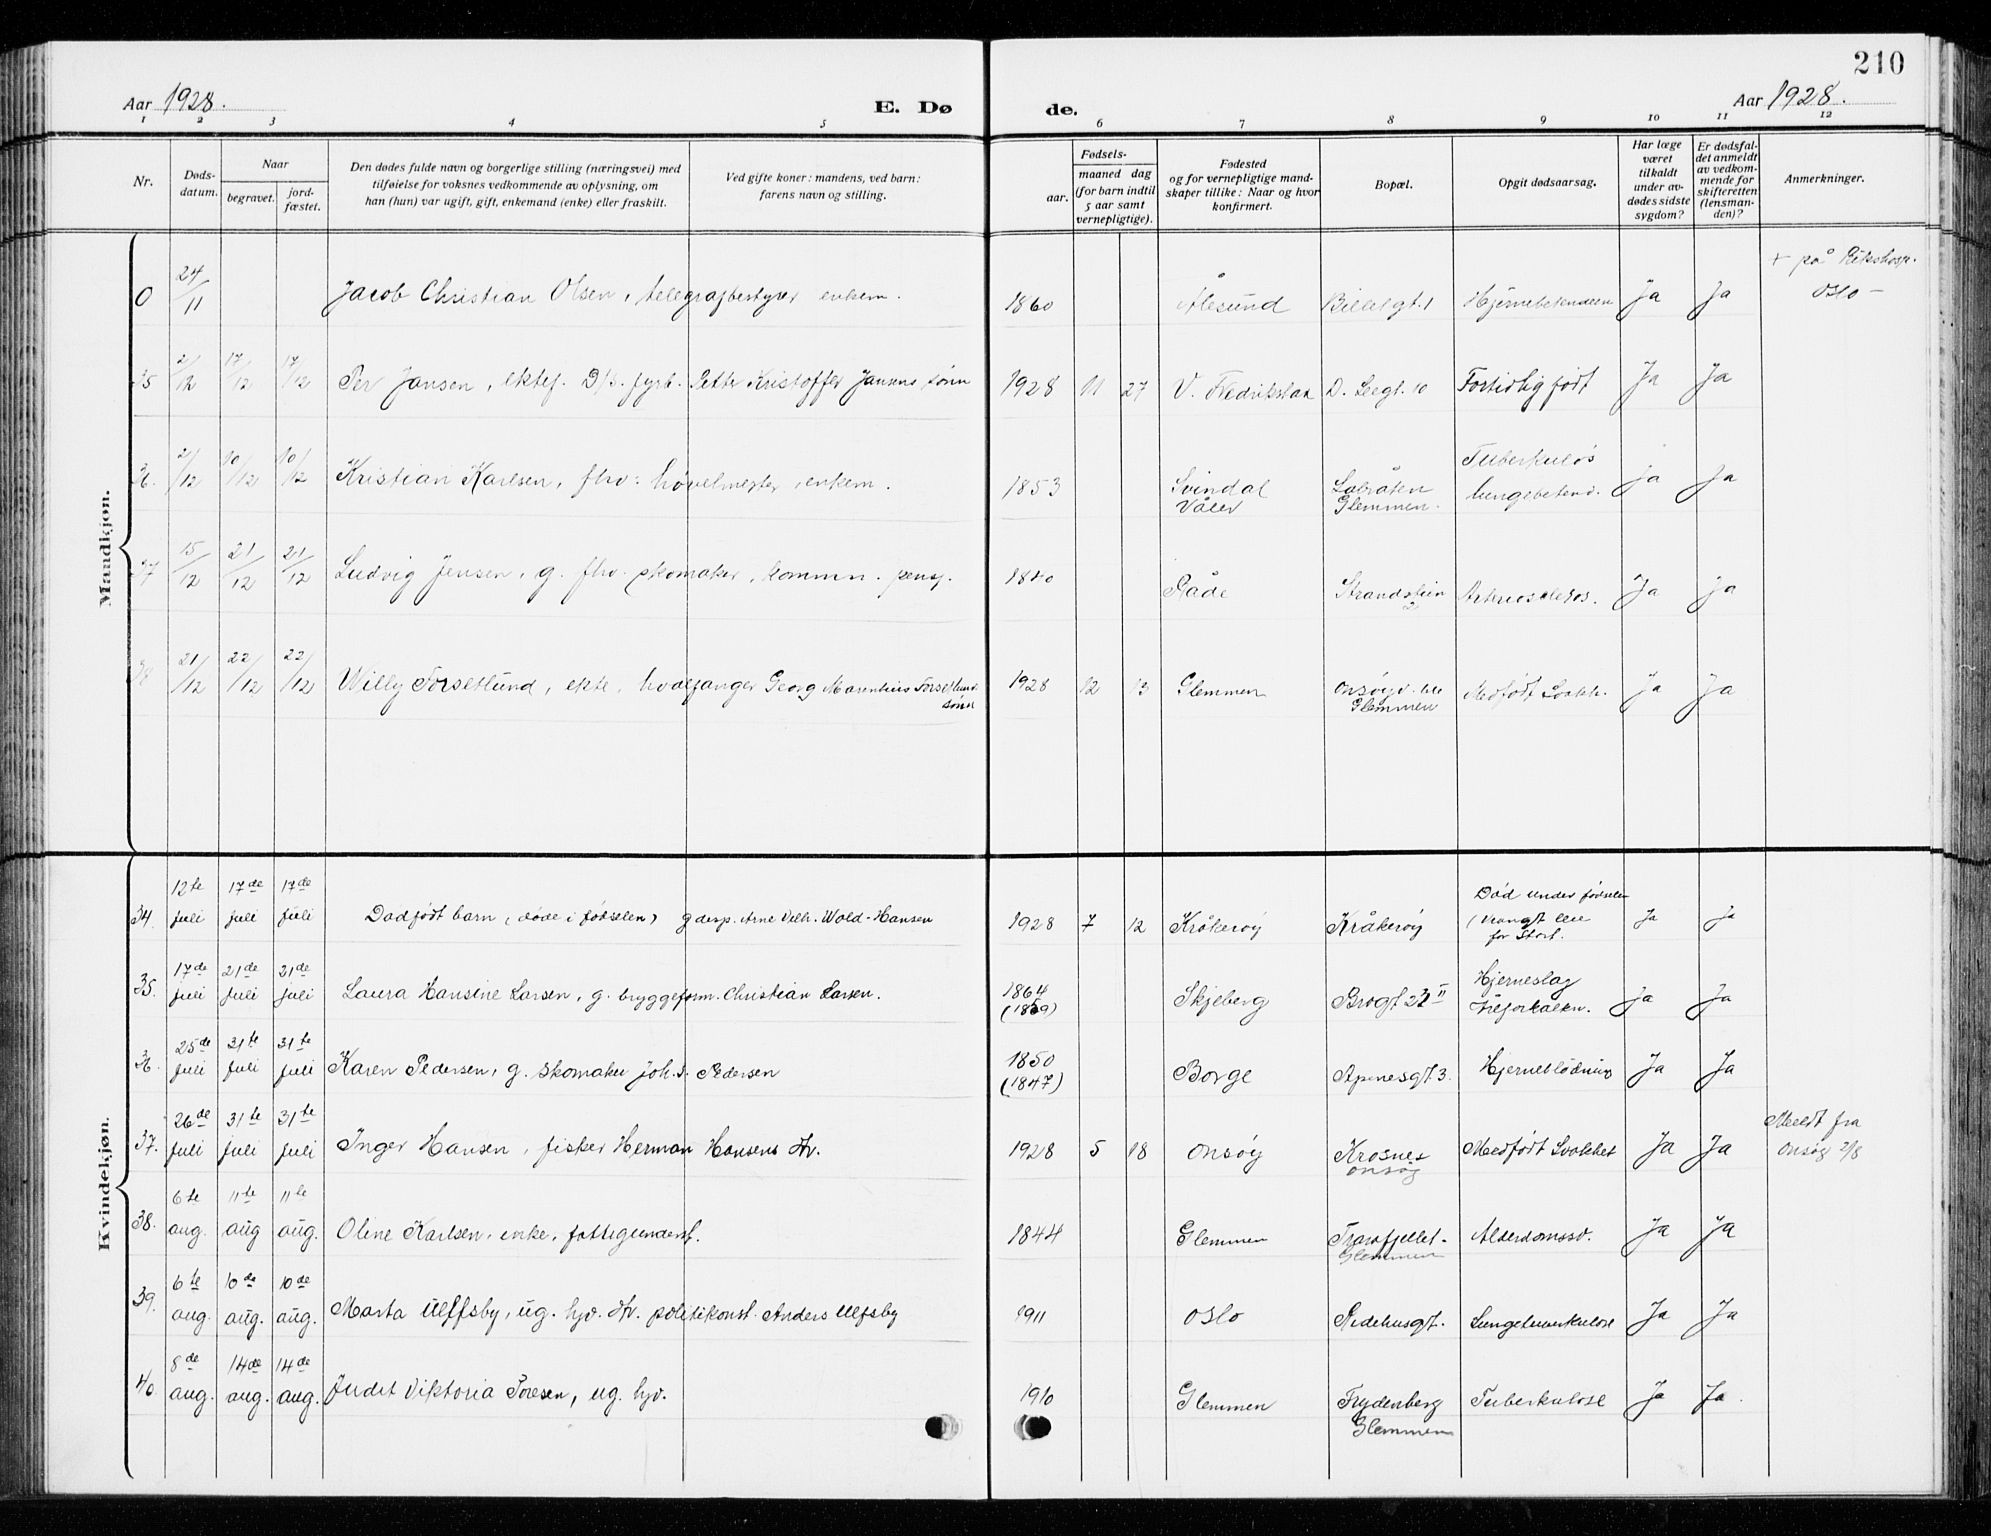 210
Aar 1928. E. Dø de. Aar 1928.
1 2 3 4 5 6 7 8 9 10 11 12
Nr.
Døds-
datum.
Naar
begravet.
jord-
fæstet.
Den dødes fulde navn og borgerlige stilling (næringsvei) med
tilføielse for voksnes vedkommende av oplysning, om
han (hun) var ugift, gift, enkemand (enke) eller fraskilt.
Ved gifte koner: mandens, ved barn:
farens navn og stilling.
Fødsels-
aar.
maaned dag
(for barn indtil
5 aar samt
vernepligtige).
Fødested
og for vernepligtige mand-
skaper tillike: Naar og hvor
konfirmert.
Bopæl.
Opgit dødsaarsag.
Har læge
været
tilkaldt
under av-
dødes sidste
sygdom?
Er dødsfal-
det anmeldt
av vedkom-
mende for
skifteretten
(lensman-
den)?
Anmerkninger.
Mandkjøn.
0 24/11 Jacob Christian Olsen, telegrafbestyrer enkem. 1860 Ålesund gt. 1 Ja Ja + på Rikshosp. Oslo –
35 2/12 17/12 17/12 Per Jansen, ektef. D/s. fyrb. Petter Kristoffer Jansens sønn 1928 11 27 V. Fredrikstad D. Leegt. 10 Fortidlig født Ja Ja
36. 2/12 10/12 10/12 Kristian Karlsen, fhv. høvelmester, enkem. 1853 Svindal Våler Glemmen. Tuberkuløs lungebetend. Ja Ja
37 15/12 21/12 21/12 Ludvig Jensen, g. fhv. skomaker, kommun. pensj. 1840 Råde Strandstien 2 Ja Ja
38 21/12 22/12 22/12 Willy Torsetlund, ekte, hvalfanger Georg Marenhius Torsetlund sønn 1928 12 13 Glemmen Onsøyv. Glemmen Medfødt Svakh. Ja Ja
Kvindekjøn.
34. 12te juli 17de juli 17de juli Dødfødt barn, (døde i fødselen) g desp. Arne Vilh. Wold-Hansen 1928 7 12 Kråkerøy Kråkerøy Død under fødselen (Vrangt leie for Stort. Ja Ja
35. 17de juli 21de juli 21de juli Laura Hansine Larsen, g. bryggeform. Christian Larsen. 1864 (1869) Skjeberg Brogt 23 II Hjerneslag Åreforkalkn. Ja Ja
36. 25de juli 31te juli 31te juli Karen Pedersen, g. skomaker Joh. S. Pedersen 1850 (1847) Borge Apenesgt 3. Hjerneblødning Ja Ja
37. 26de juli 31te juli 31te juli Inger Hansen, fisker Herman Hansens dtr. 1928 5 18 Onsøy Krosnes Onsøy Medfødt Svakhet Ja Ja Meldt fra Onsøy 2/8
38. 6te aug. 11te aug 11te aug. Oline Karlsen, enke, fattigunderst. 1844 Glemmen Trarafjellet. Glemmen Alderdomssv. Ja Ja
39. 6te aug. 10de aug. 10de aug. Marta Ulffsby, ug. hjv. dtr. politikonst. Anders Ulfsby 1911 Oslo Lungetuberkulose Ja Ja
40. 8de aug. 14de aug. 14de aug. Judit Viktoria Toresen, ug. hjv. 1910 Glemmen Frydenberg Glemmen Tuberkulose Ja Ja.